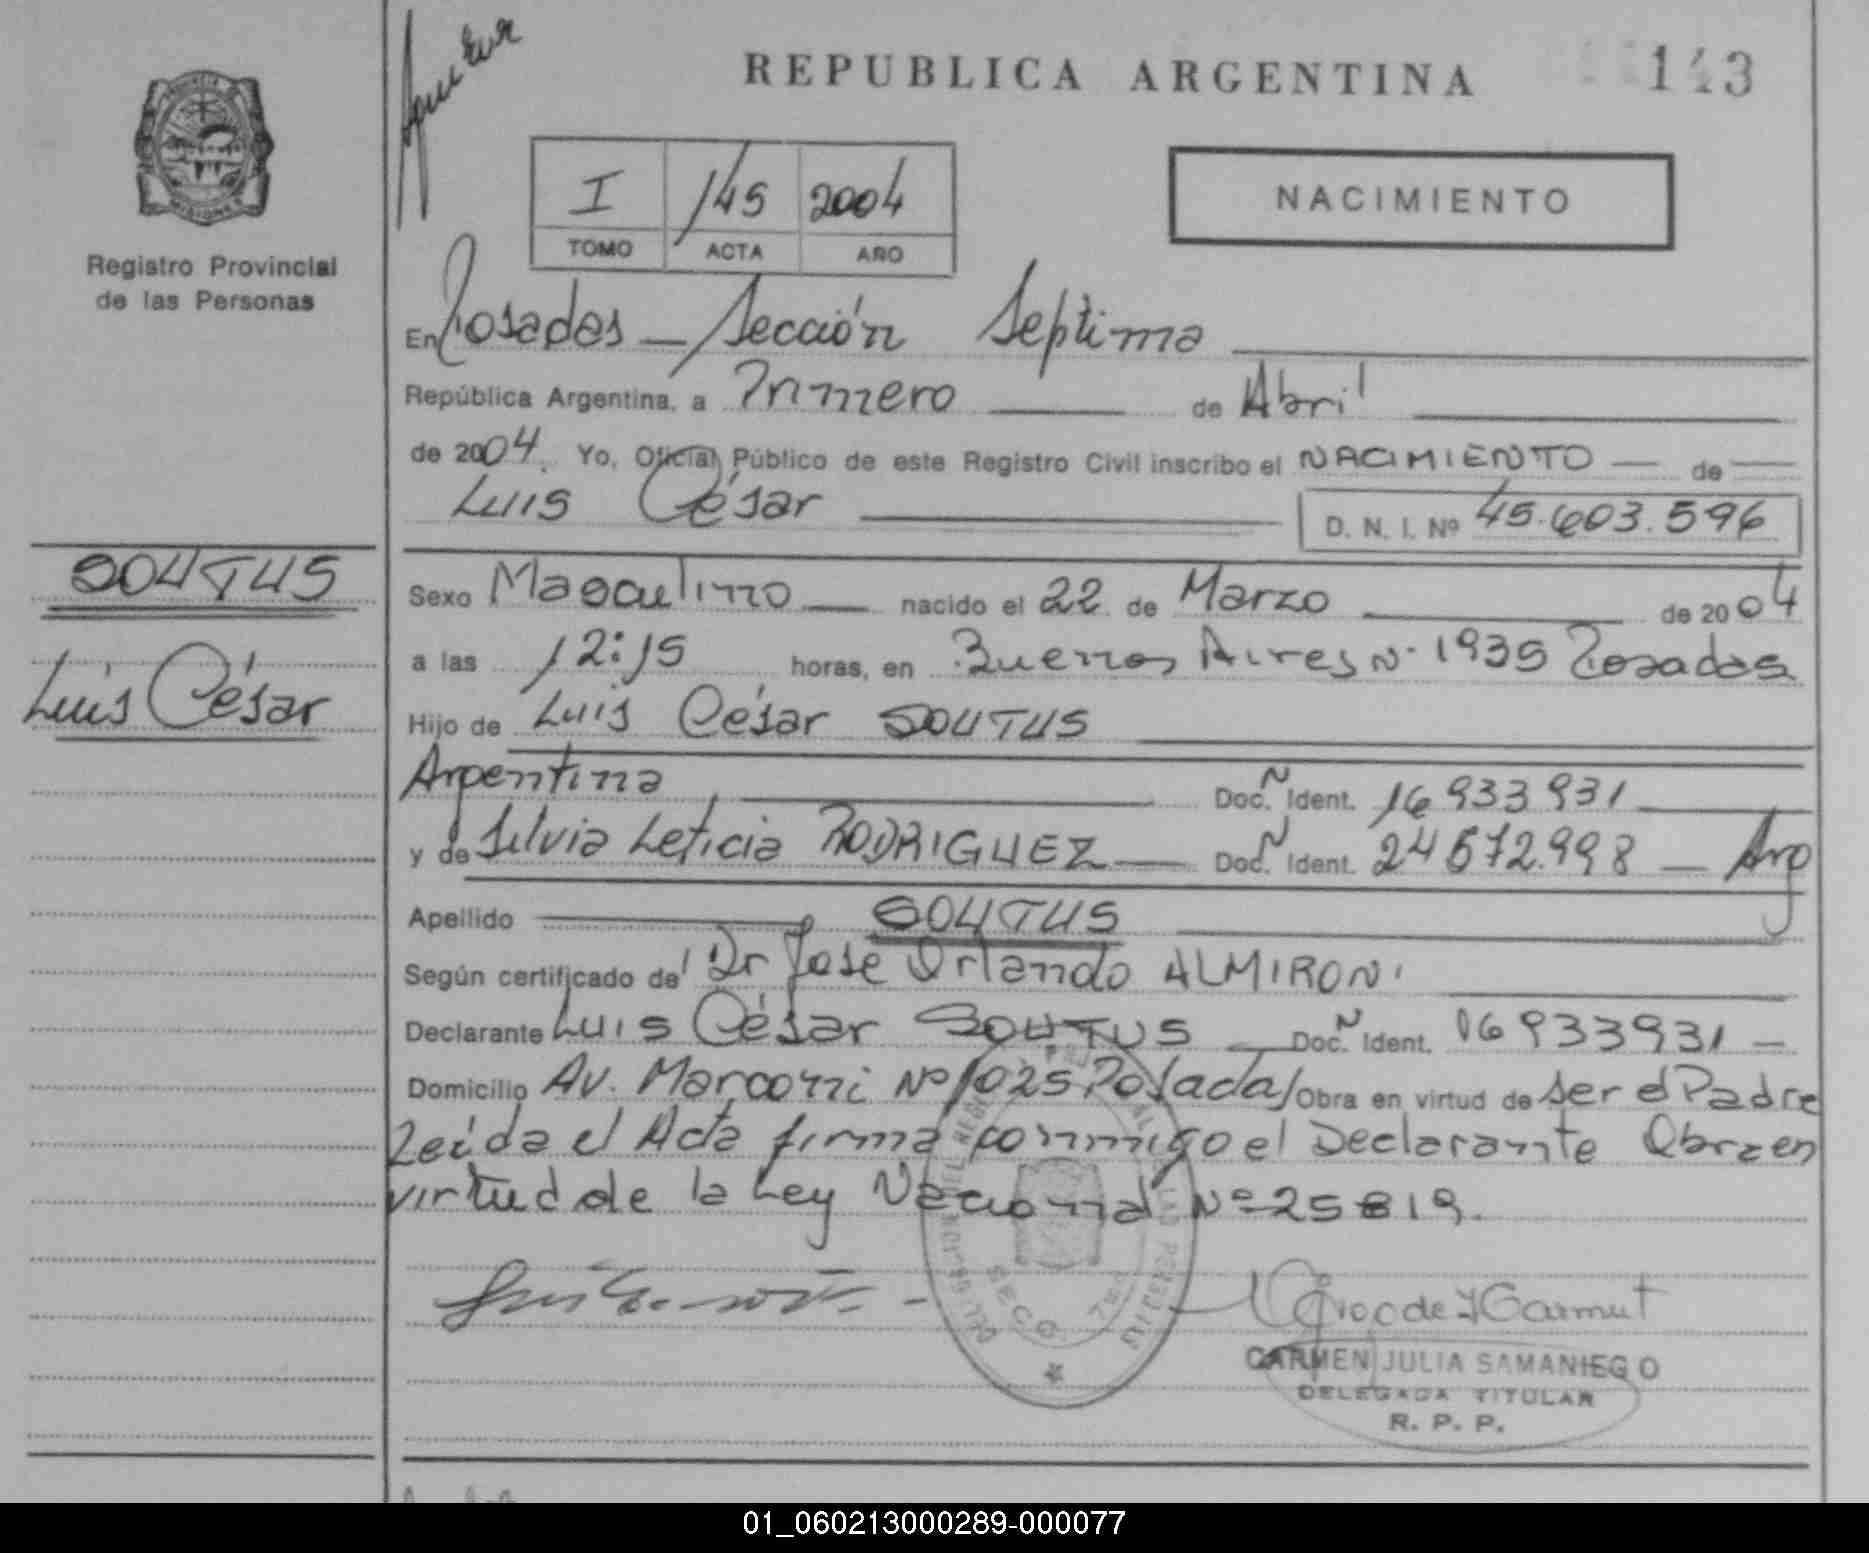 REPUBLICA ARGENTINA
143
PROVINCIA DE
MISIONES
Registro Provincial
de las Personas
I /145 2004
TOMO ACTA AÑO
NACIMIENTO
En Posadas — Sección Septima
República Argentina, a Primero de Abril
de 2004. Yo, Oficial Público de este Registro Civil inscribo el NACIMIENTO — de
Luis César D. N. I. Nº 45.603.596
SOUTUS
Luis César
Sexo Masculino nacido el 22 de Marzo de 2004
a las 12:15 horas, en Buenos Aires Nº 1935 Posadas
Hijo de Luis César SOUTUS
Argentina Doc. Ident. 16 933 931
y de Silvia Leticia RODRIGUEZ — Doc. Ident. 24 672.998 — Arg
Apellido SOUTUS
Según certificado de Dr Jose Orlando ALMIRON
Declarante Luis César SOUTUS — Doc. Ident. 16 933931 —
Domicilio Av. Marconi Nº 1025 Posadas Obra en virtud de ser el Padre
Leída el Acta firma conmigo el Declarante Obra en
virtud de la Ley Nacional Nº 25819.
SECC. 7ma
CARMEN JULIA SAMANIEGO
DELEGADA TITULAR
R. P. P.
01_060213000289-000077